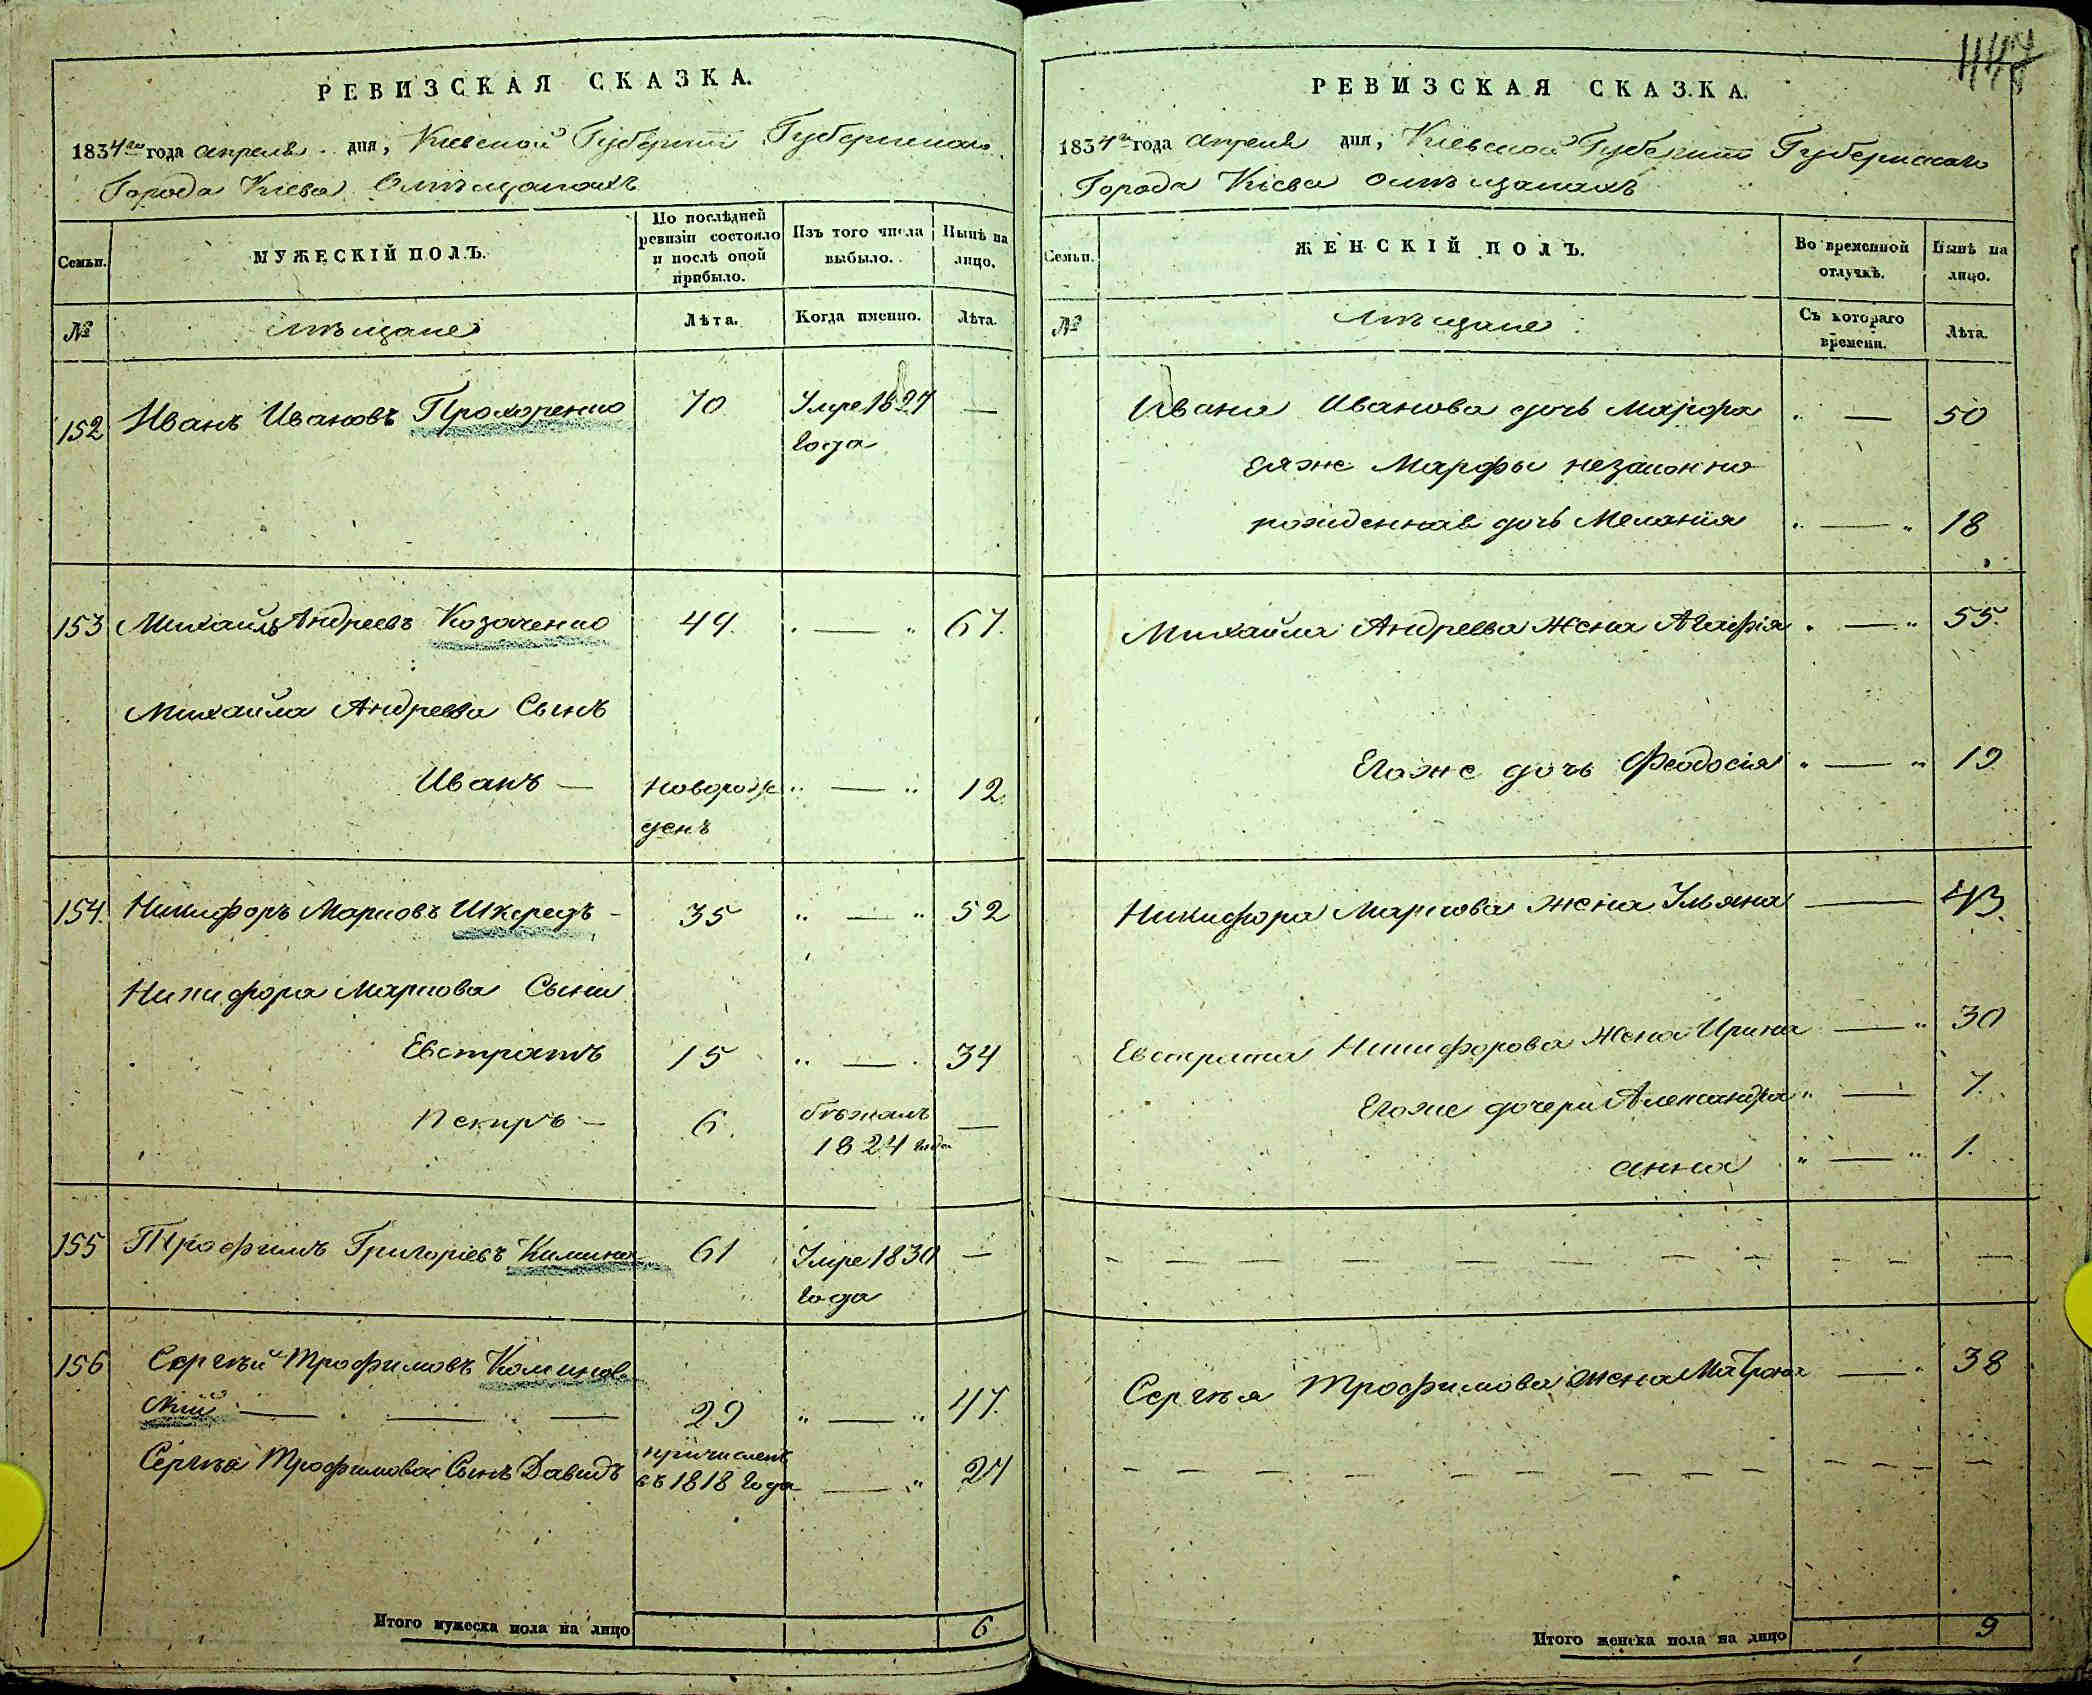 РЕВИЗСКАЯ СКАЗКА.
1834го года апреля дня, Кіевской Губерніи Губернскаго
Города Кіева Омѣщанахъ
Семьи.
МУЖЕСКІЙ ПОЛЪ.
По послѣдней ревизіи состояло и послѣ оной прибыло.
Изъ того числа выбыло.
Нынѣ на лицо.
№
мѣщане
Лѣта.
Когда именно.
Лѣта.
152 Иванъ Ивановъ Прохоренко 70 Умре 1827 —
года
153 Михаилъ Андреевъ Козаченко 49. „ — „ 67.
Михайла Андреева Сынъ
Иванъ — новорож „ — „ 12.
денъ
154. Никифоръ Марковъ Шкередъ - 35 „ — „ 52
Никифора Маркова Сыни
Евстратъ 15 „ — . 34
Пекиръ — 6. бѣжалъ —
1824 года
155 Трофимъ Григоріевъ 61 Умре 1830 —
года
156 Сергѣй Трофимовъ Коминов
скій — — — 29 „ — „ 47.
Сергѣя Трофимова Сынъ Давидъ причисленъ
въ 1818 года — „ 24
Итого мужеска пола на лицо 6
РЕВИЗСКАЯ СКАЗКА.
1834го года апреля дня, Кіевской Губерніи Губернскаго
Города Кіева омѣщанахъ
Семьи.
ЖЕНСКІЙ ПОЛЪ.
Во временной отлучкѣ.
Нынѣ на лицо.
№
мѣщане
Съ котораго времени.
Лѣта.
Ивана Иванова дочь Марфа „ — 50
Еяже Марфы незаконно
рожденная дочь Меланія „ — „ 18
Михайла Андреева жена Агафія „ — „ 55.
Егоже дочь Феодосія „ — „ 19
Никифора Маркова жена Ульяна — 43.
Евстрата Никифорова жена Ирина — „ 30
Егоже дочери Александра „ — 7.
анна „ — „ 1.
— — — — — — — — — — —
Сергѣя Трофимова жена Матрона — „ 38
— — — — — — — — — — —
Итого женска пола на лицо 9